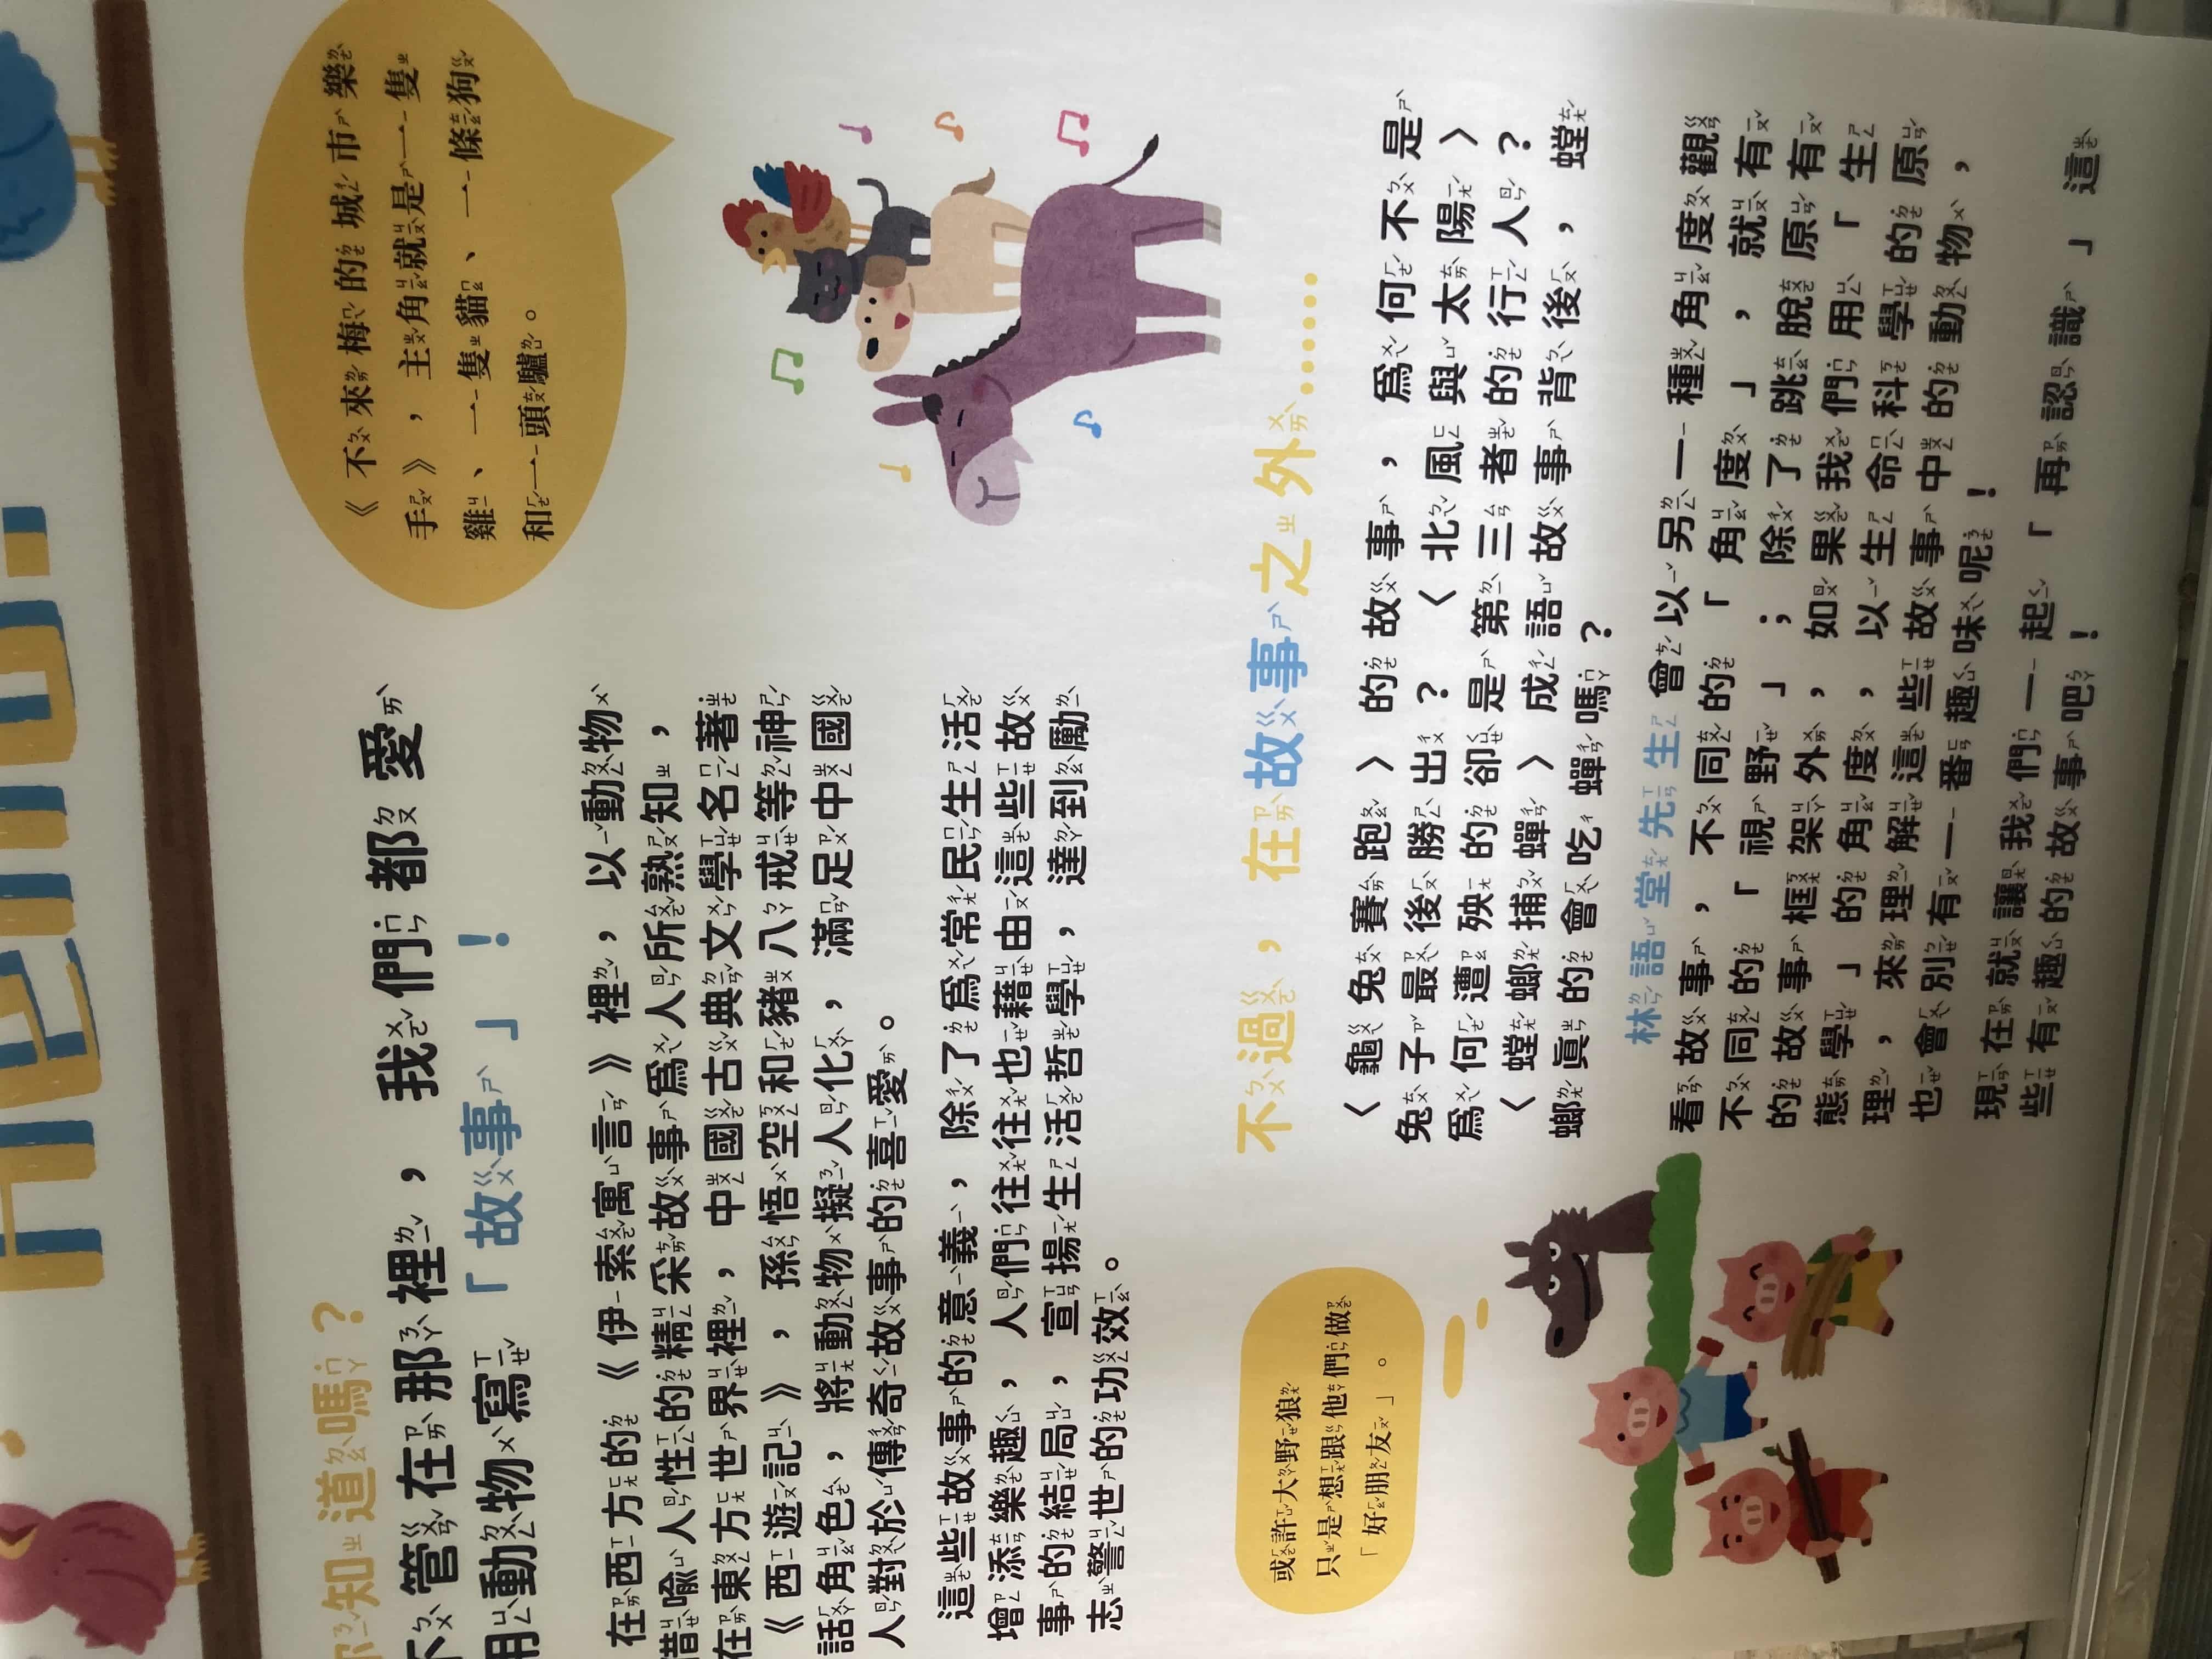 你知道嗎？
不管在那裡，我們都愛
用動物寫「故事」！
《不來梅的城市樂
手》，主角就是一隻
雞、一隻貓、一條狗
和一頭驢。
在西方的《伊索寓言》裡，以動物
借喻人性的精采故事為人所熟知，
在東方世界裡，中國古典文學名著
《西遊記》，孫悟空和豬八戒等神
話角色，將動物擬人化，滿足中國
人對於傳奇故事的喜愛。
這些故事的意義，除了為常民生活
增添樂趣，人們往往也藉由這些故
事的結局，宣揚生活哲學，達到勵
志警世的功效。
不過，在故事之外......
〈龜兔賽跑〉的故事，為何不是
兔子最後勝出？〈北風與太陽〉
為何遭殃的卻是第三者的行人？
〈螳螂捕蟬〉成語故事背後，螳
螂真的會吃蟬嗎？
林語堂先生曾以另一種角度觀
看故事，不同的「角度」，就有
不同的「視野」；除了跳脫原有
的故事框架外，如果我們用「生
態學」的角度，以生命科學的原
理，來理解這些故事中的動物，
也會別有一番趣味呢！
現在就讓我們一起「再認識」這
些有趣的故事吧！
或許大野狼
只是想跟他們做
「好朋友」。